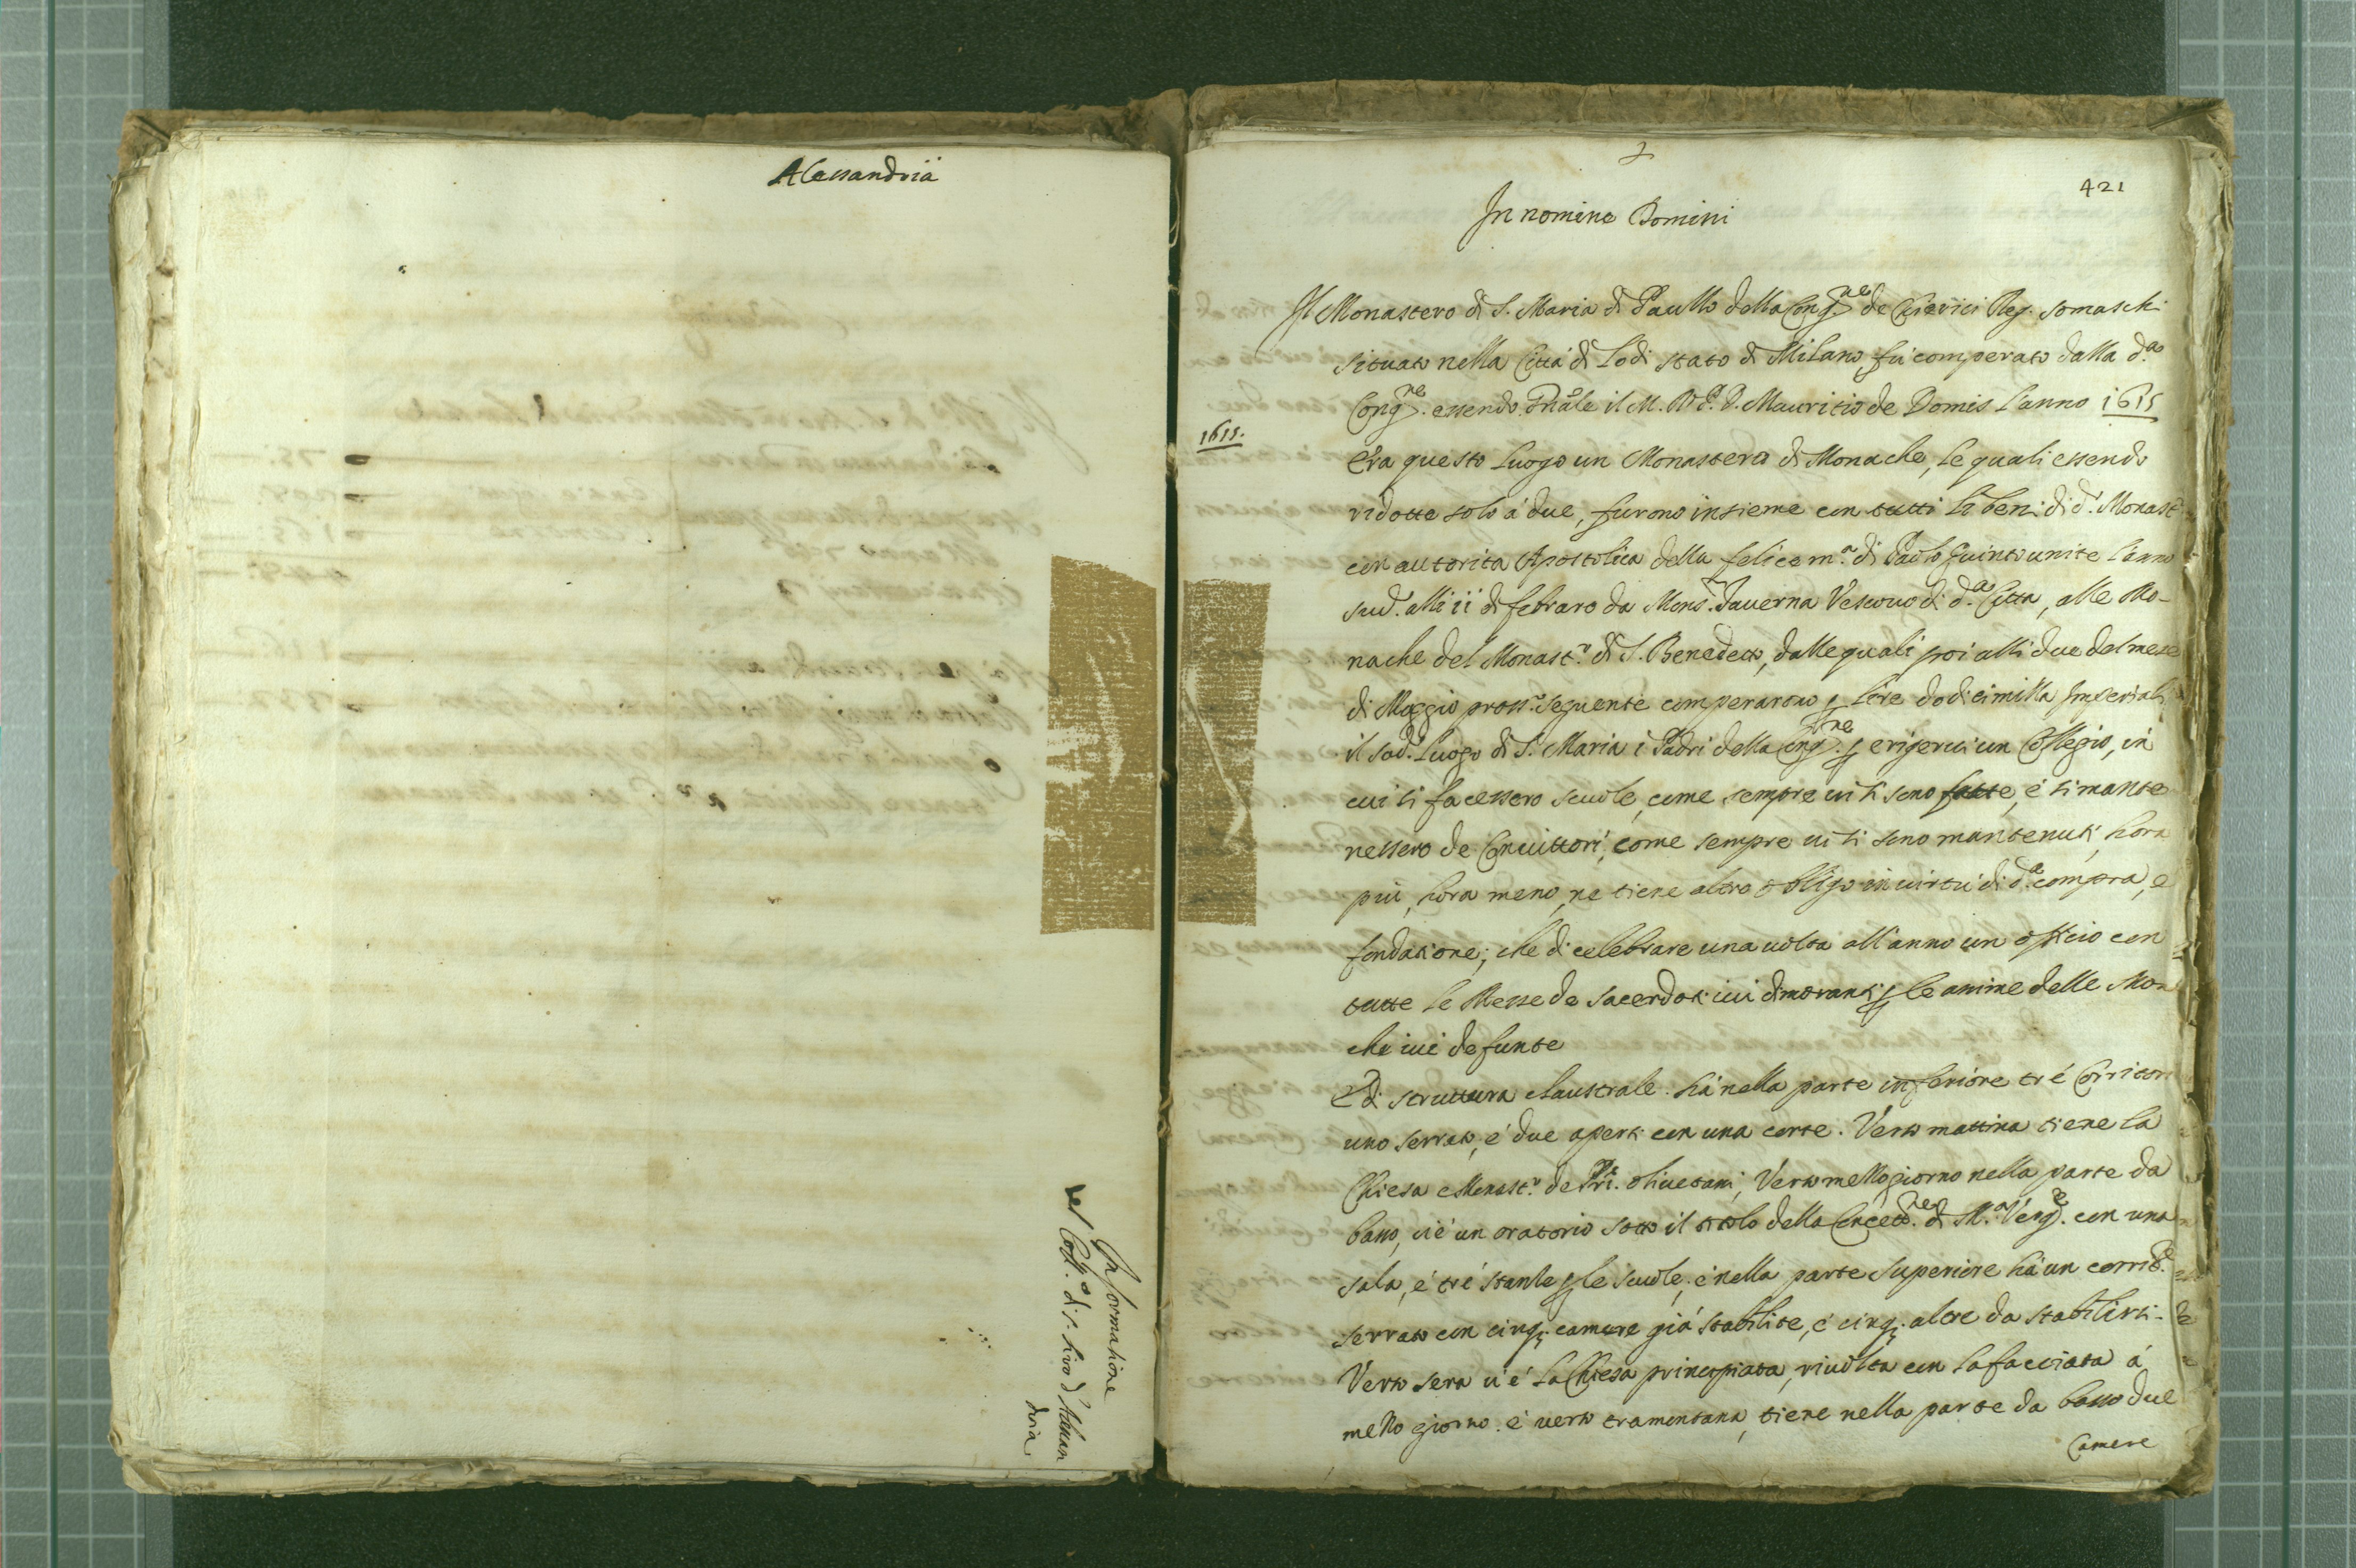 Alessandria
Informatione
del Coll.º di S. Siro d'Alessan
dria
421
In nomine Domini
Il Monastero di S. Maria di Paullo della Cong.ne de Chierici Reg. somaschi
situato nella Città di Lodi stato di Milano, fù comperato dalla d.a
Cong.ne essendo Pnãle il M. R. P. D. Mauritio de Domis l'anno 1615
1615.
Era questo luogo un Monastero di Monache, le quali essendo
ridotte solo à due, furono insieme con tutti li beni di d.º Monast.
con autorità Apostolica della felice m.a di Paolo Quinto unite l'anno
sud.º alli 11 di febraro da Mons.r Taverna Vescovo di d.a Città, alle Mo-
nache del Monast.º di S. Benedetto, dalle quali poi alli due del mese
di Maggio pross.º seguente comperarono p lire dodicimilla Imperiali
il sod.º luogo di S. Maria i Padri della Cong.ne p erigervi un Collegio, in
cui si facessero scuole, come sempre vi si sono fatte, é si mante
nessero de Convittori, come sempre vi si sono mantenuti, hora
più, hora meno, ne tiene altro obligo in virtù di d.a compra, e
fondatione; che di celebrare una volta all'anno un officio con
tutte le Messe de sacerdoti ivi dimoranti p le anime delle Mona
che ivi defunte
È di struttura claustrale. hà nella parte inferiore tré Corritori
uno serrato, é due aperti con una corte. Verso mattina tiene la
Chiesa e Monast.º de Pri. Olivetani, Verso mezzogiorno nella parte da
basso, vi é un oratorio sotto il titolo della Concett.ne di M.a Verg.e con una
sala, é tré stanze p le scuole; é nella parte superiore hà un corrid.e
serrato con cinq. camere già stabilite, é cinq. altre da stabilirsi.
Verso sera vi é la Chiesa principiata, rivolta con la facciata á
mezzo giorno. é verso tramontana, tiene nella parte da basso due
Camere